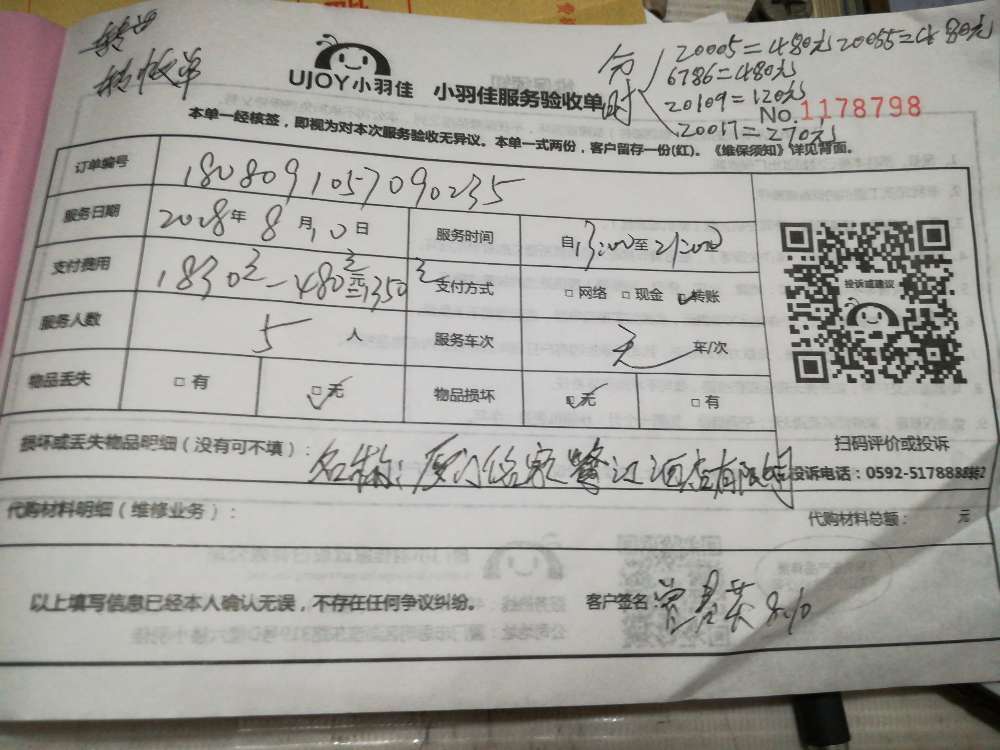 转收单
分时
20005=480元 20055=480元
6786=480元
20109=120元
20017=270元
UJOY小羽佳 小羽佳服务验收单
No.1178798
本单一经核签，即视为对本次服务验收无异议。本单一式两份，客户留存一份(红)。《维保须知》详见背面。
订单编号 1808091057090235
服务日期 2018年8月10日 服务时间 自13:00至21:00
支付费用 1830元-480元=1350元 支付方式 □网络 □现金 ☑转账
服务人数 5人 服务车次 无 车/次
物品丢失 □有 ☑无 物品损坏 ☑无 □有
投诉或建议
扫码评价或投诉
损坏或丢失物品明细（没有可不填）： 名称：厦门 鹭江酒店有限公司
投诉电话：0592-5178888转2
代购材料明细（维修业务）： 代购材料总额： 元
以上填写信息已经本人确认无误，不存在任何争议纠纷。 客户签名： 8.10